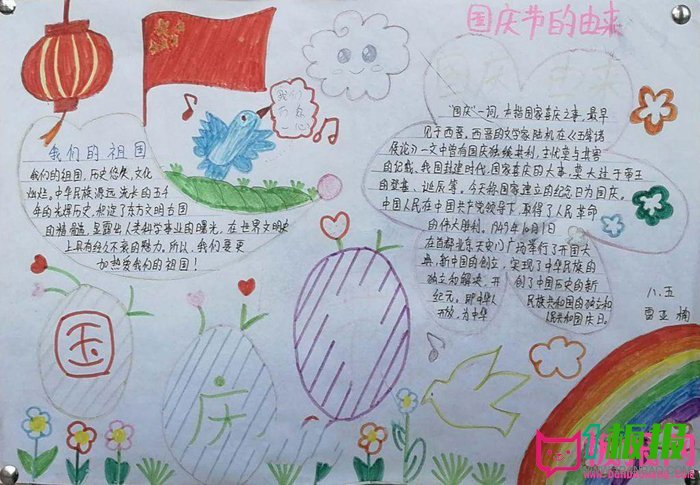 国庆节的由来
我们
一心
我们的祖国
我们的祖国,历史悠久,文化
灿烂。中华民族源远流长的五千
年的光辉历史,
的精髓,
上具有经久不衰的魅力。所以,我们要更
加热爱我们的祖国!
"国庆"一词,本指国家喜庆之事,最早
见于西晋。西晋的文学家陆机在《五等诸
侯论》一文中曾有国庆独飨其利,主忧莫与其害
的记载,我国封建时代,国家喜庆的大事,莫大过于帝王
的登基、诞辰等。今天称国家建立的纪念日为国庆。
中国人民在中国共产党领导下,取得了人民革命
的伟大胜利。1949年10月1日
在首都北京天安门广场举行了开国大
典,新中国的创立,实现了中华民族的
独立和解放,开创了中国历史的新
纪元。
国
庆
八、五